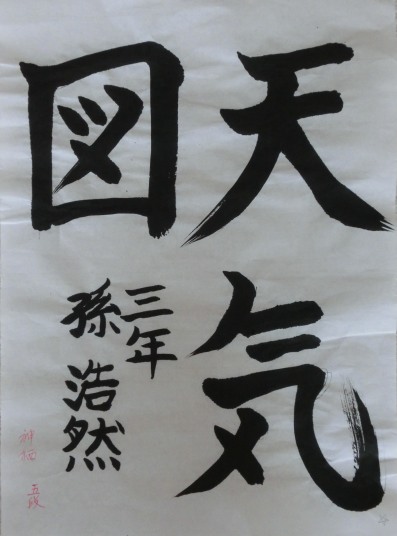 天気
図
三年
孫浩然
五段